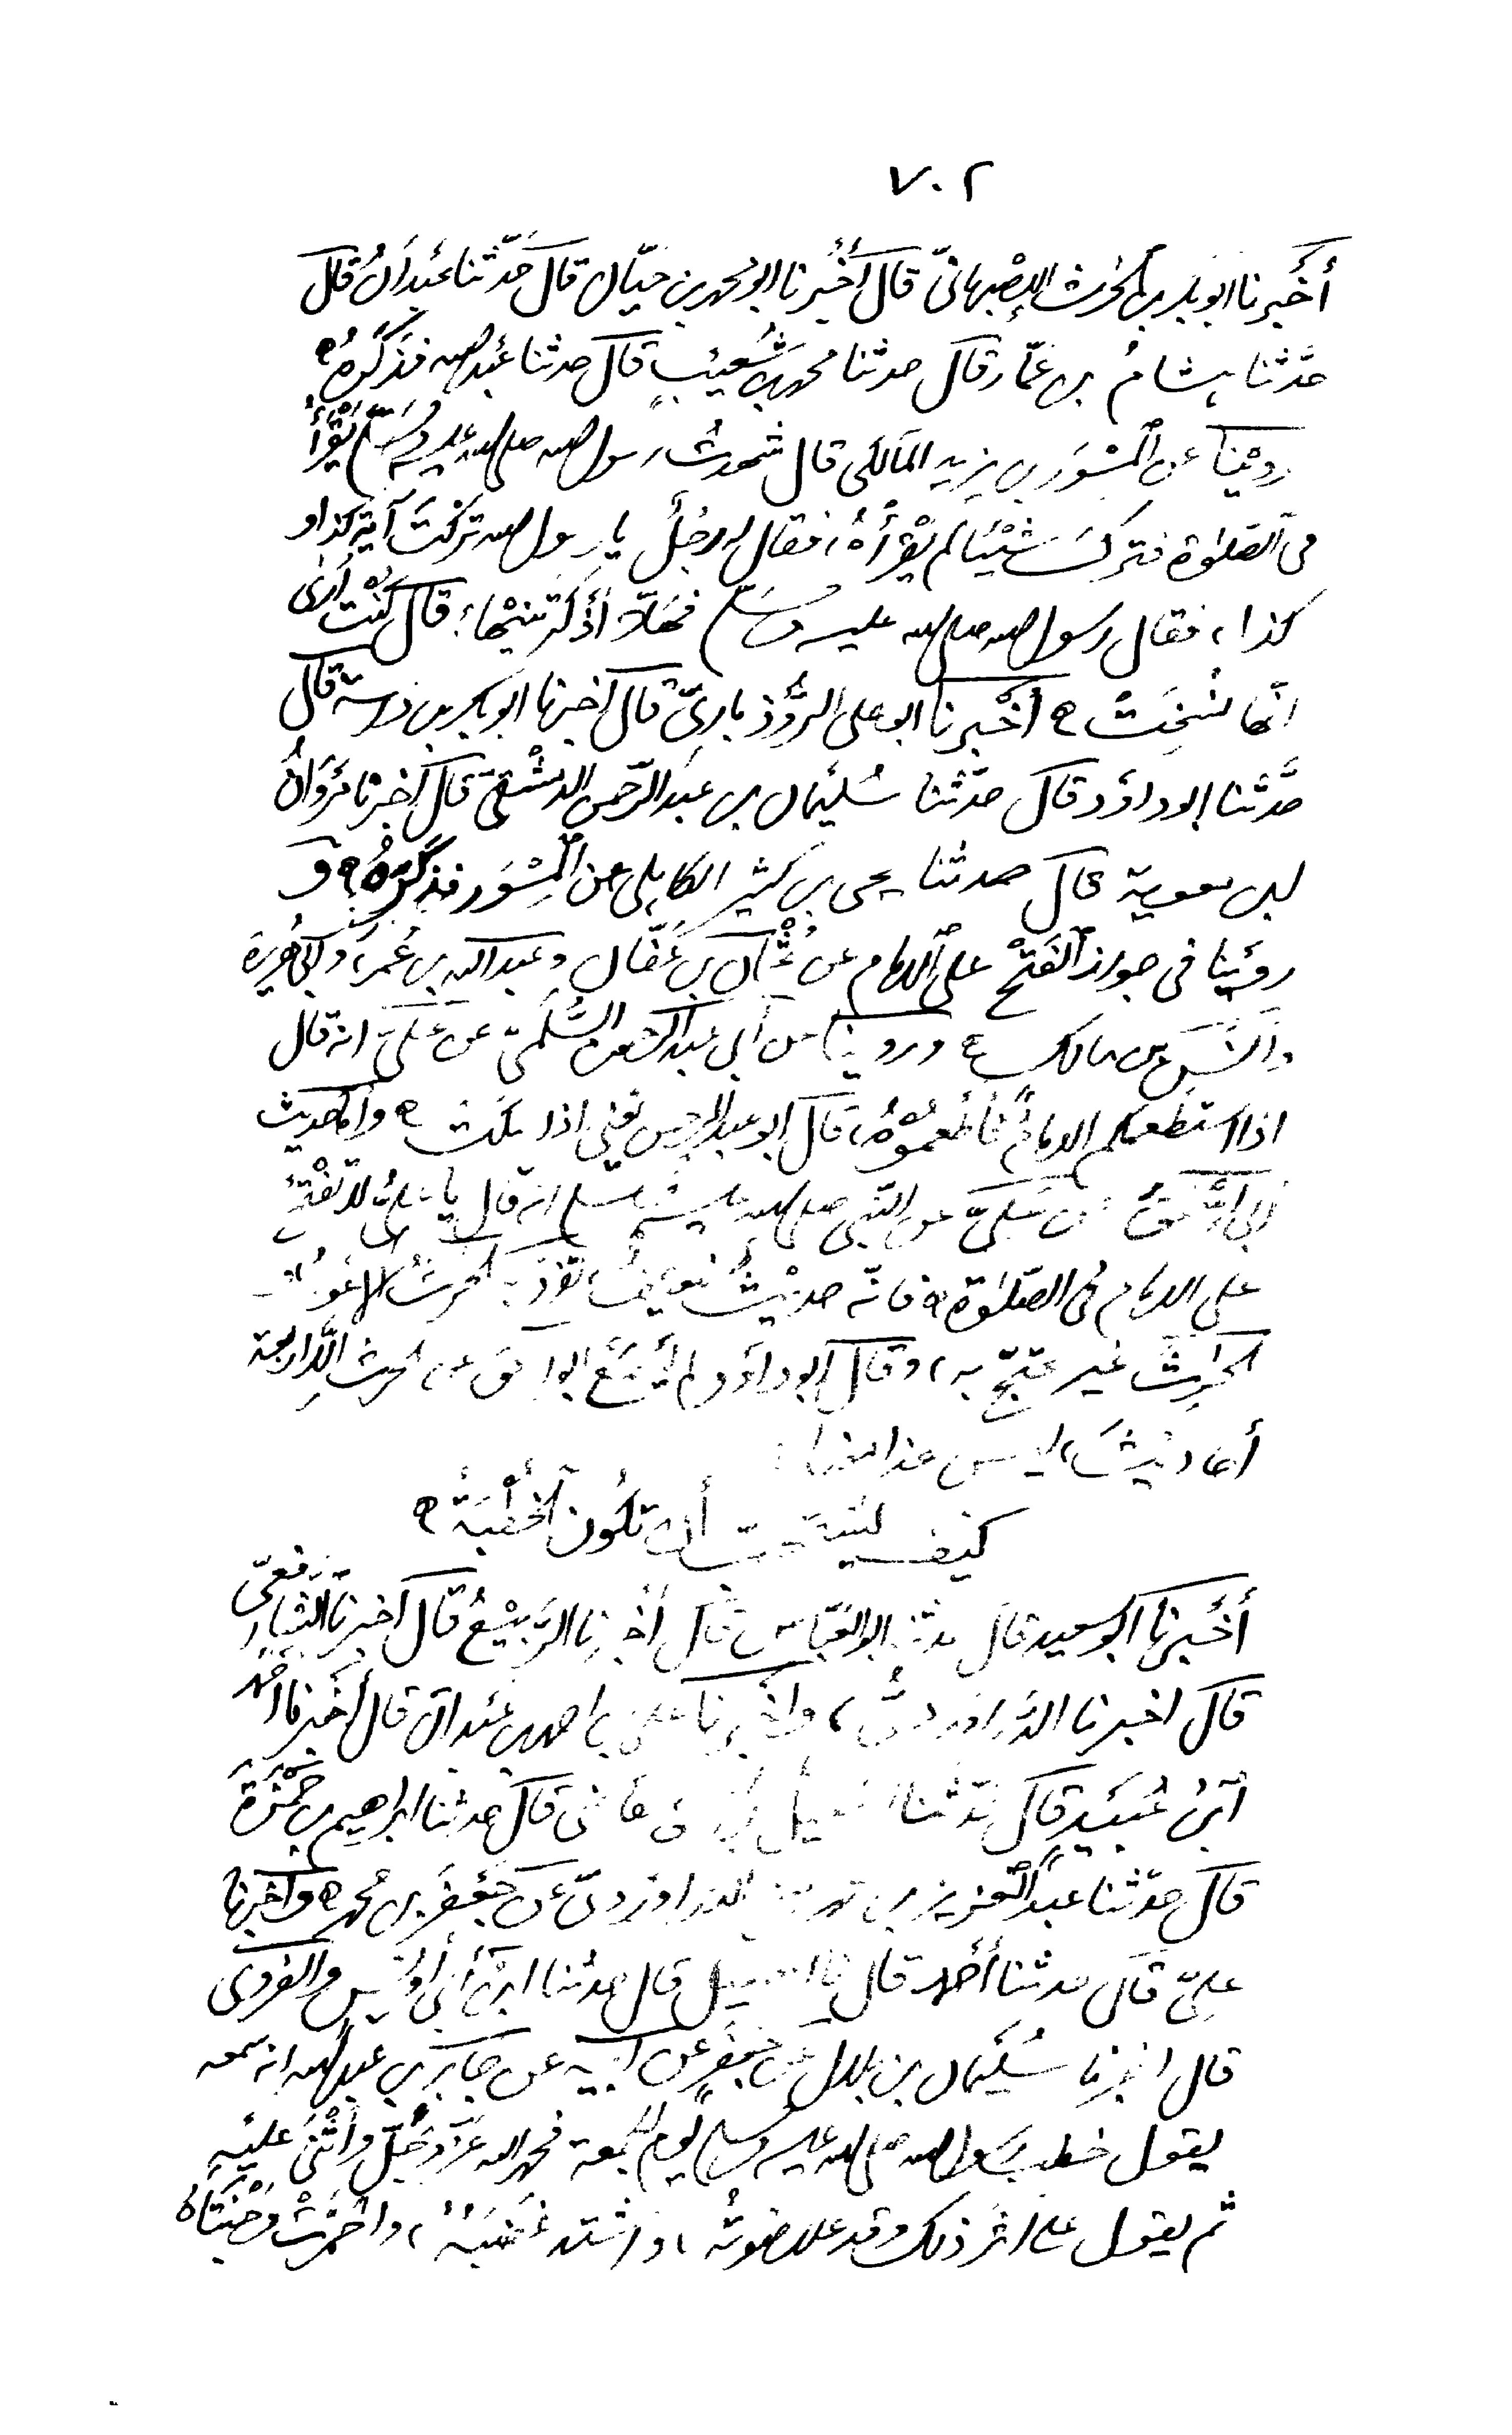 ٧٠٢
أخبرنا ابو بكر بن الحرث الإصبهانىّ قال أخبرنا ابو محمد بن حيّان قال حدّثنا عبدان قال
حدّثنا هشام بن عمّار قال حدثنا محمد بن شعيب قال حدثنا عبد الله فذكره
روينا عن المسور بن يزيد المالكى قال شهدت رسول الله صلى الله عليه وسلم يقرأ
فى الصلوة فترك شيئا لم يقرأه، فقال له رجل يا رسول الله تركت آية كذا و
كذا، فقال رسول الله صلى الله عليه وسلم فهلّا أذكرتنيها، قال كنت أرى
انها نسخت أخبرنا ابو على الروذبارىّ قال اخبرنا ابو بكر بن داسة قال
حدّثنا ابو داود قال حدّثنا سليمان بن عبد الرحمن الدمشقىّ قال اخبرنا مروان
ابن معوية قال حدثنا يحيى بن كثير الكاهلى عن المسور فذكره و
روينا فى جواز الفتح على الامام عن عثمان بن عفّان وعبد الله بن عمر، وابى هريرة
وأنس بن مالك وروينا عن أبى عبد الرحمن السّلمىّ عن علىّ انه قال
اذا استطعمكم الامام فأطعموه، قال ابو عبد الرحمن يعنى اذا سكت والحديث
عن علىّ عن النّبى صلى الله عليه وسلم انه قال يا علىّ لا تفتح
على الامام فى الصّلوة فانّه حديث ضعيف، تفرّد به الحرث الاعور
الحرث غير محتجّ به، وقال ابو داود لم يسمع ابو اسحق من الحرث الّا اربعة
أحاديث ليس هذا منها
كيف يستحب أن تكون الخطبة
أخبرنا ابو سعيد قال حدثنا ابو العبّاس قال أخبرنا الربيع قال اخبرنا الشافعىّ
قال اخبرنا الدراوردىّ، واخبرنا علىّ بن احمد بن عبدان قال أخبرنا احمد
ابن عبيد قال حدّثنا اسمعيل قال حدثنا ابراهيم بن حمزة
قال حدّثنا عبد العزيز بن محمد الدراوردىّ عن جعفر بن محمد واخبرنا
علىّ قال حدثنا أحمد قال اسمعيل قال حدثنا ابن أبى أويس والفروى
قال اخبرنا سليمان بن بلال عن جعفر عن ابيه عن جابر بن عبد الله انه سمعه
يقول خطب رسول الله صلى الله عليه وسلم يوم الجمعة فحمد الله عزّ وجلّ وأثنى عليه
ثم يقول على اثر ذلك وقد علا صوته، واشتد غضبه، واحمرّت وجنتاه